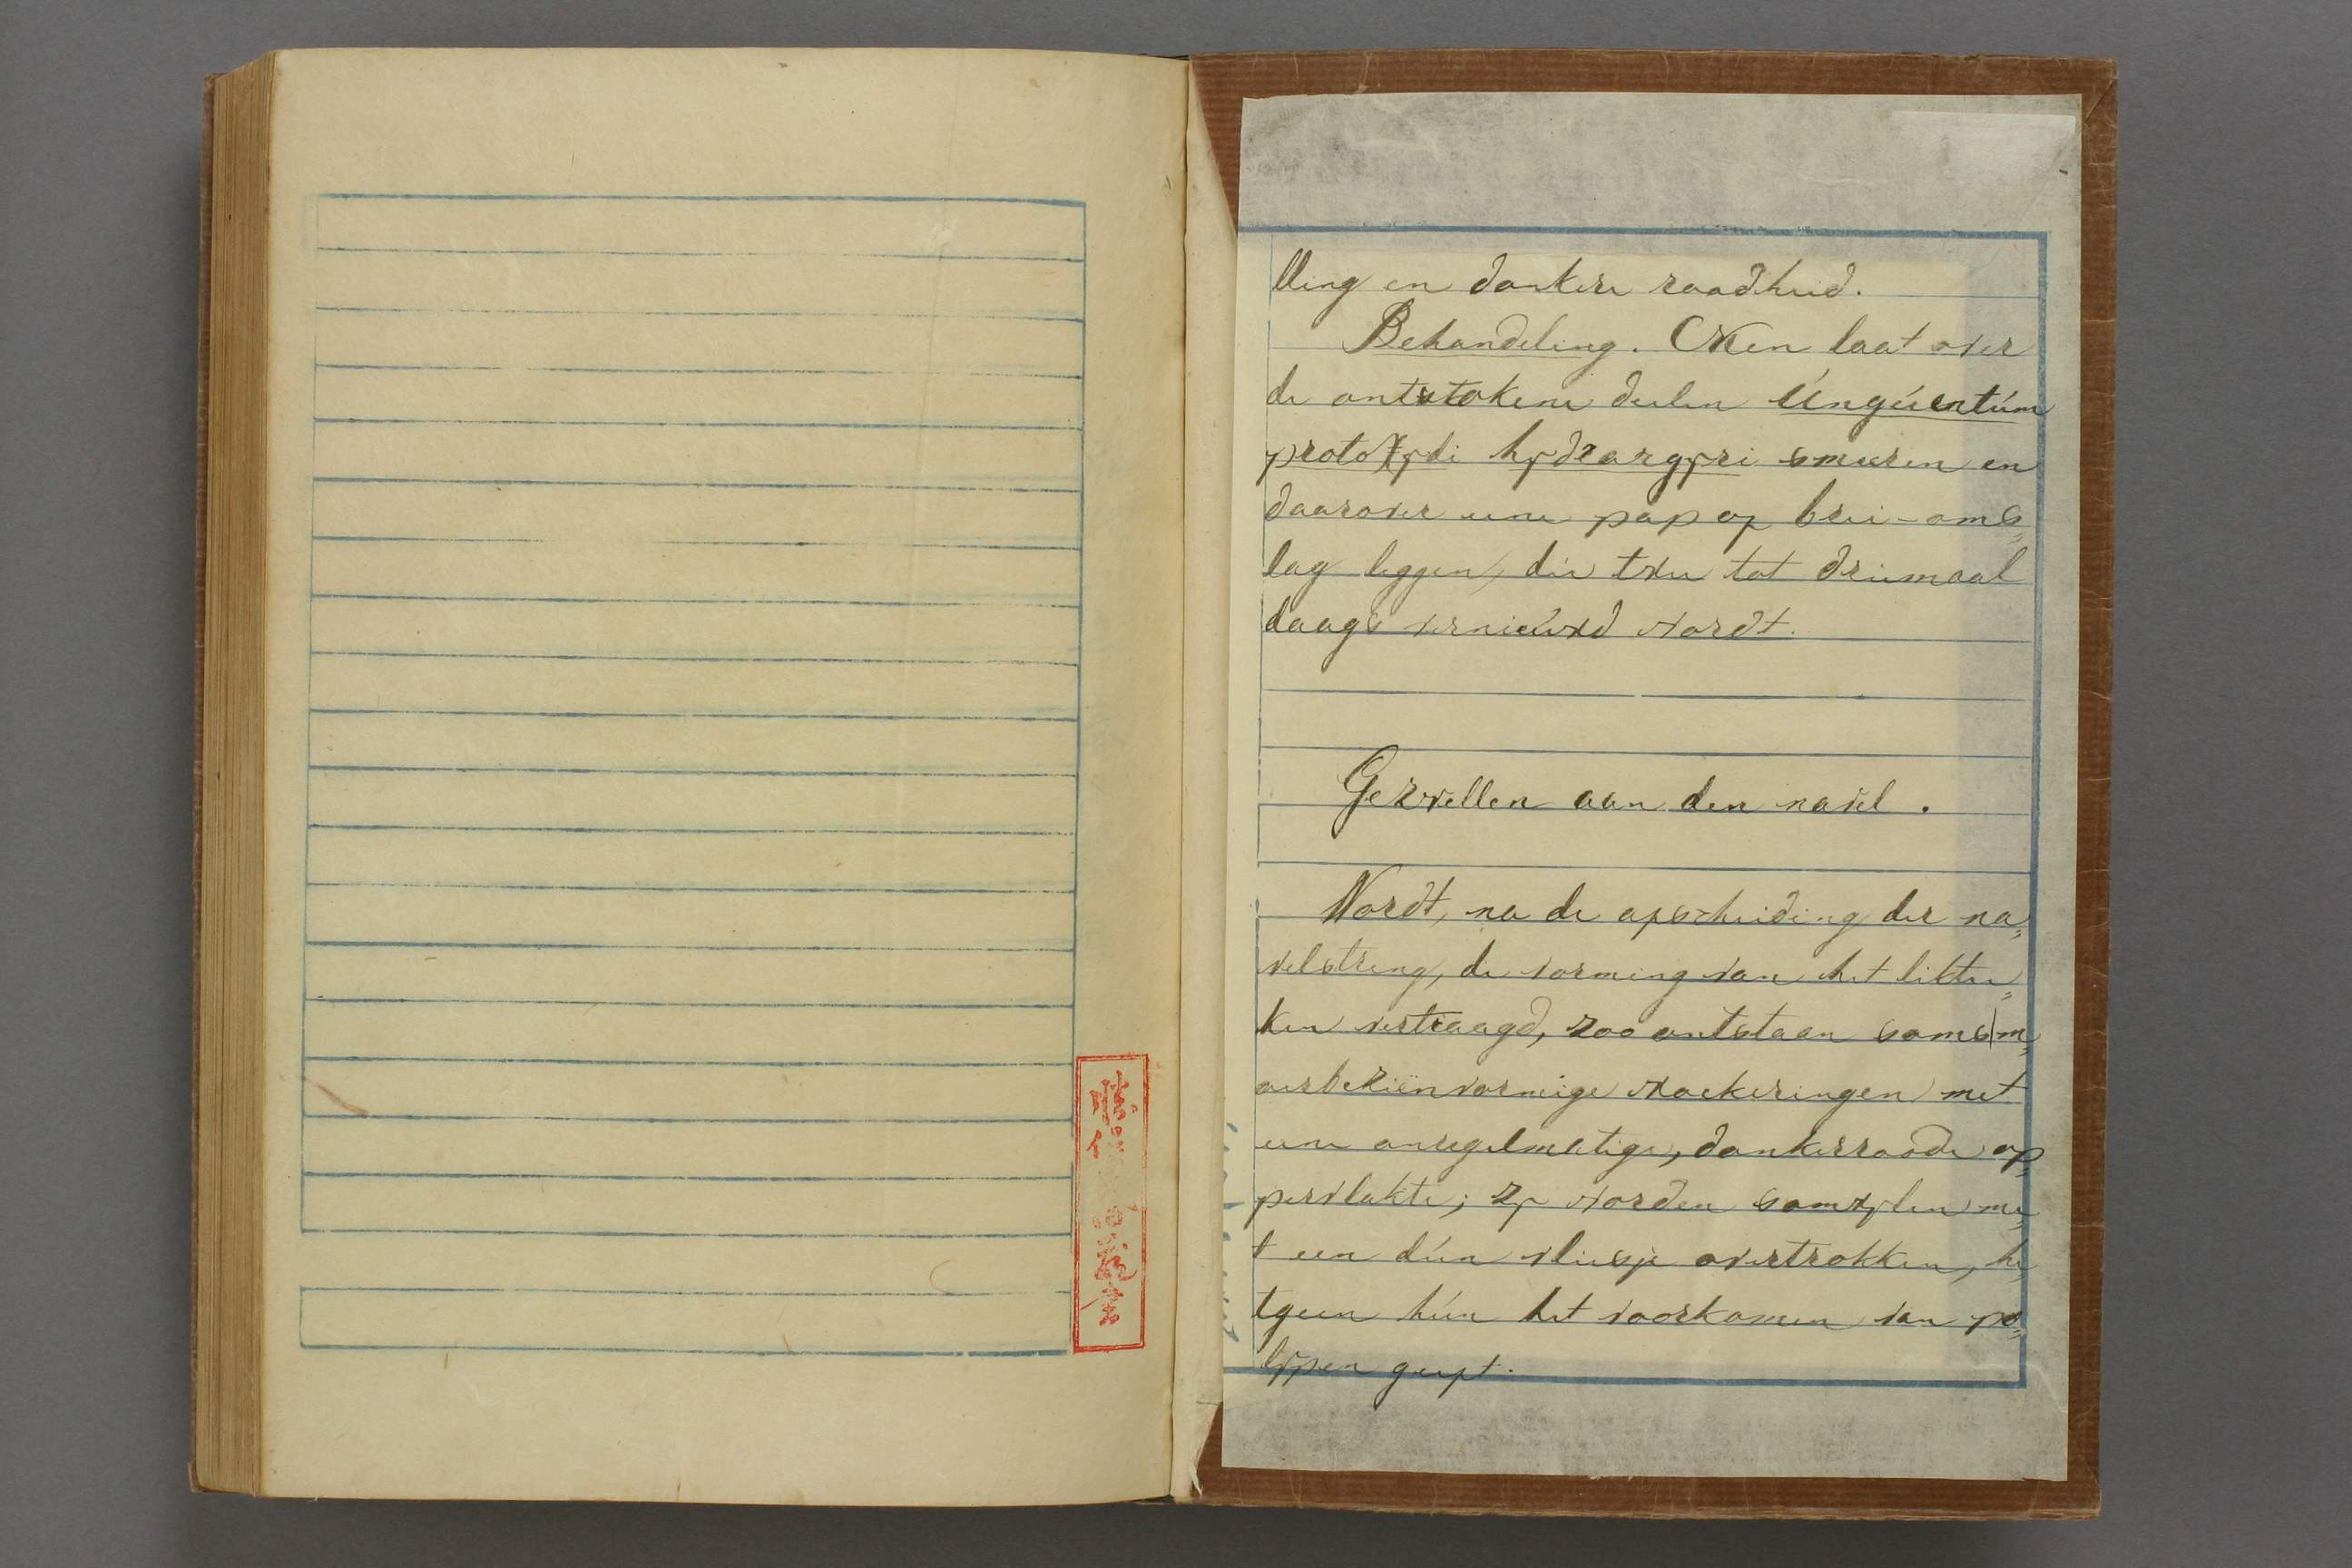 lling en donkere roodheid.
Behandeling. Men laat over
de ontstokene deelen Úngúentúm
protoxydi hydrargyri smeeren en
daarover eene pap of brei-oms„
lag leggen, die twee tot driemaal
daags vernieúwd wordt.
Gezwellen aan den navel.
Wordt, na de afscheiding der na„
velstreng, de vorming van het liktee„
ken vertraagd, zoo ontstaan soms m„
oerbeziënvormige woekeringen met
eene onregelmatige, donkerroode op„
pervlakte; zy worden somwylen me„
t een dún vliesje overtrokken, he„
tgeen hún het voorkomen van po„
lypen geeft.